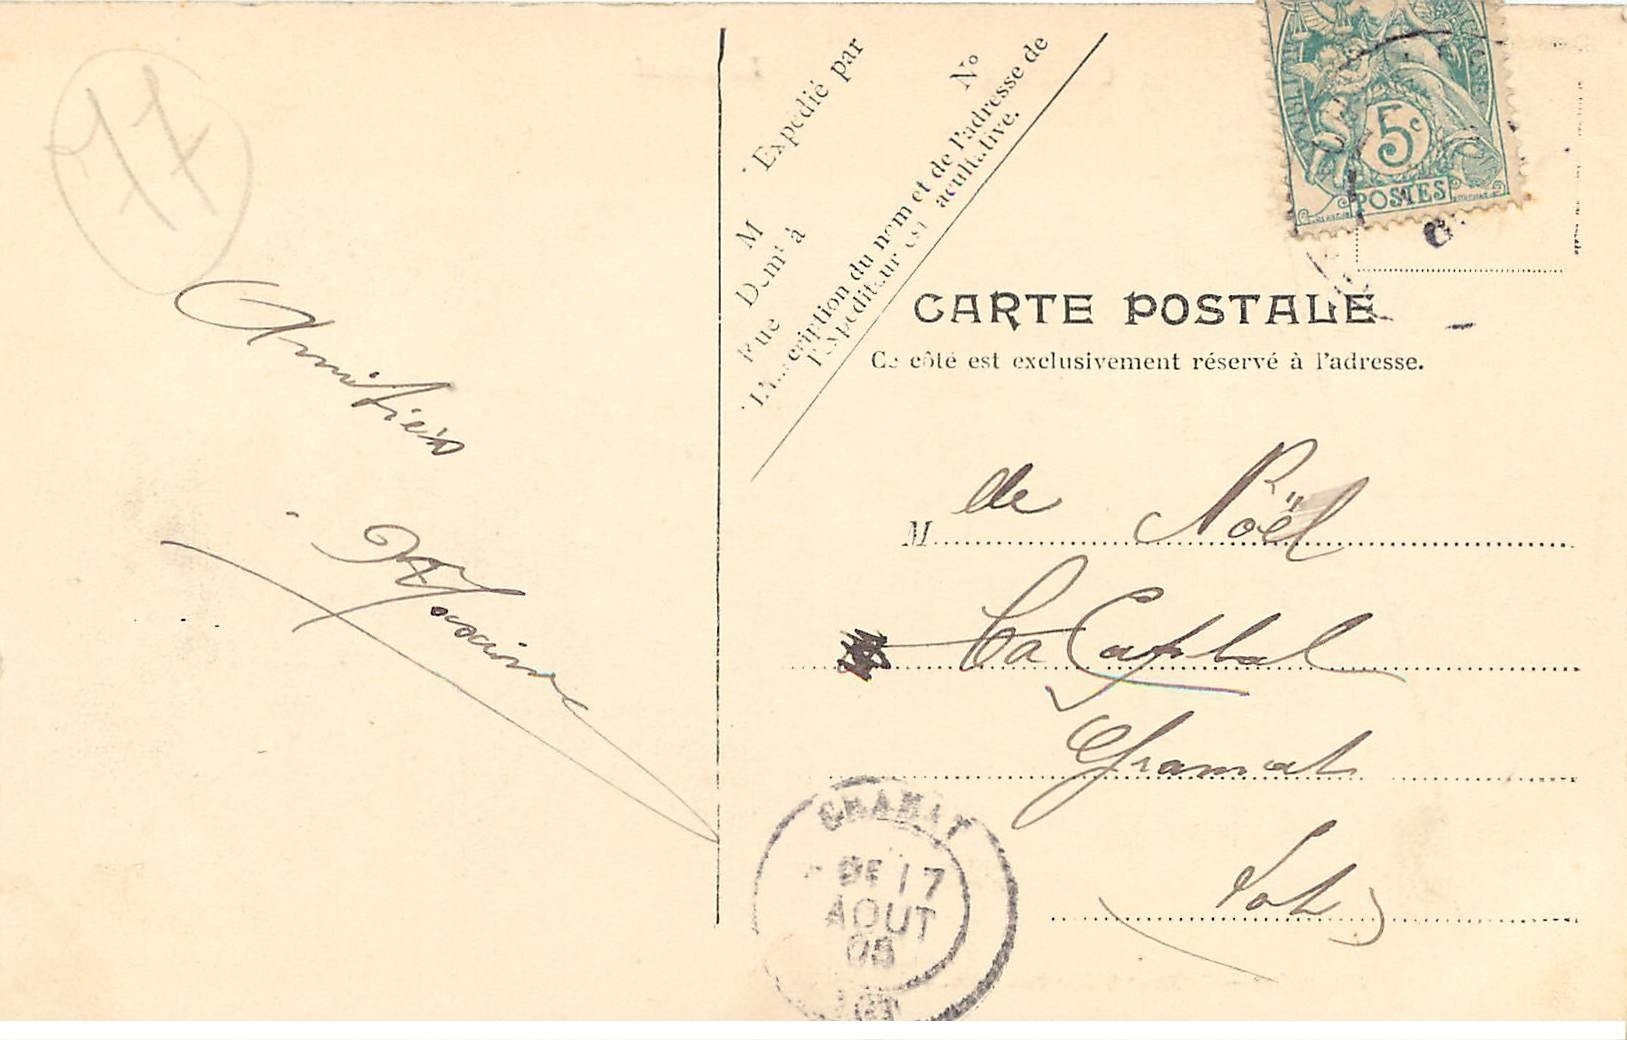 77
Amitiés
Maxime
M Expédié par
M
Demt à
Rue
N°
L'Inscription du nom et de l'adresse de
l'expéditeur est facultative.
5c
POSTES
CARTE POSTALE
Ce côté est exclusivement réservé à l'adresse.
M de Noël
La Capital
Gramat
Lot
GRAMAT
17
AOUT
05
LOT